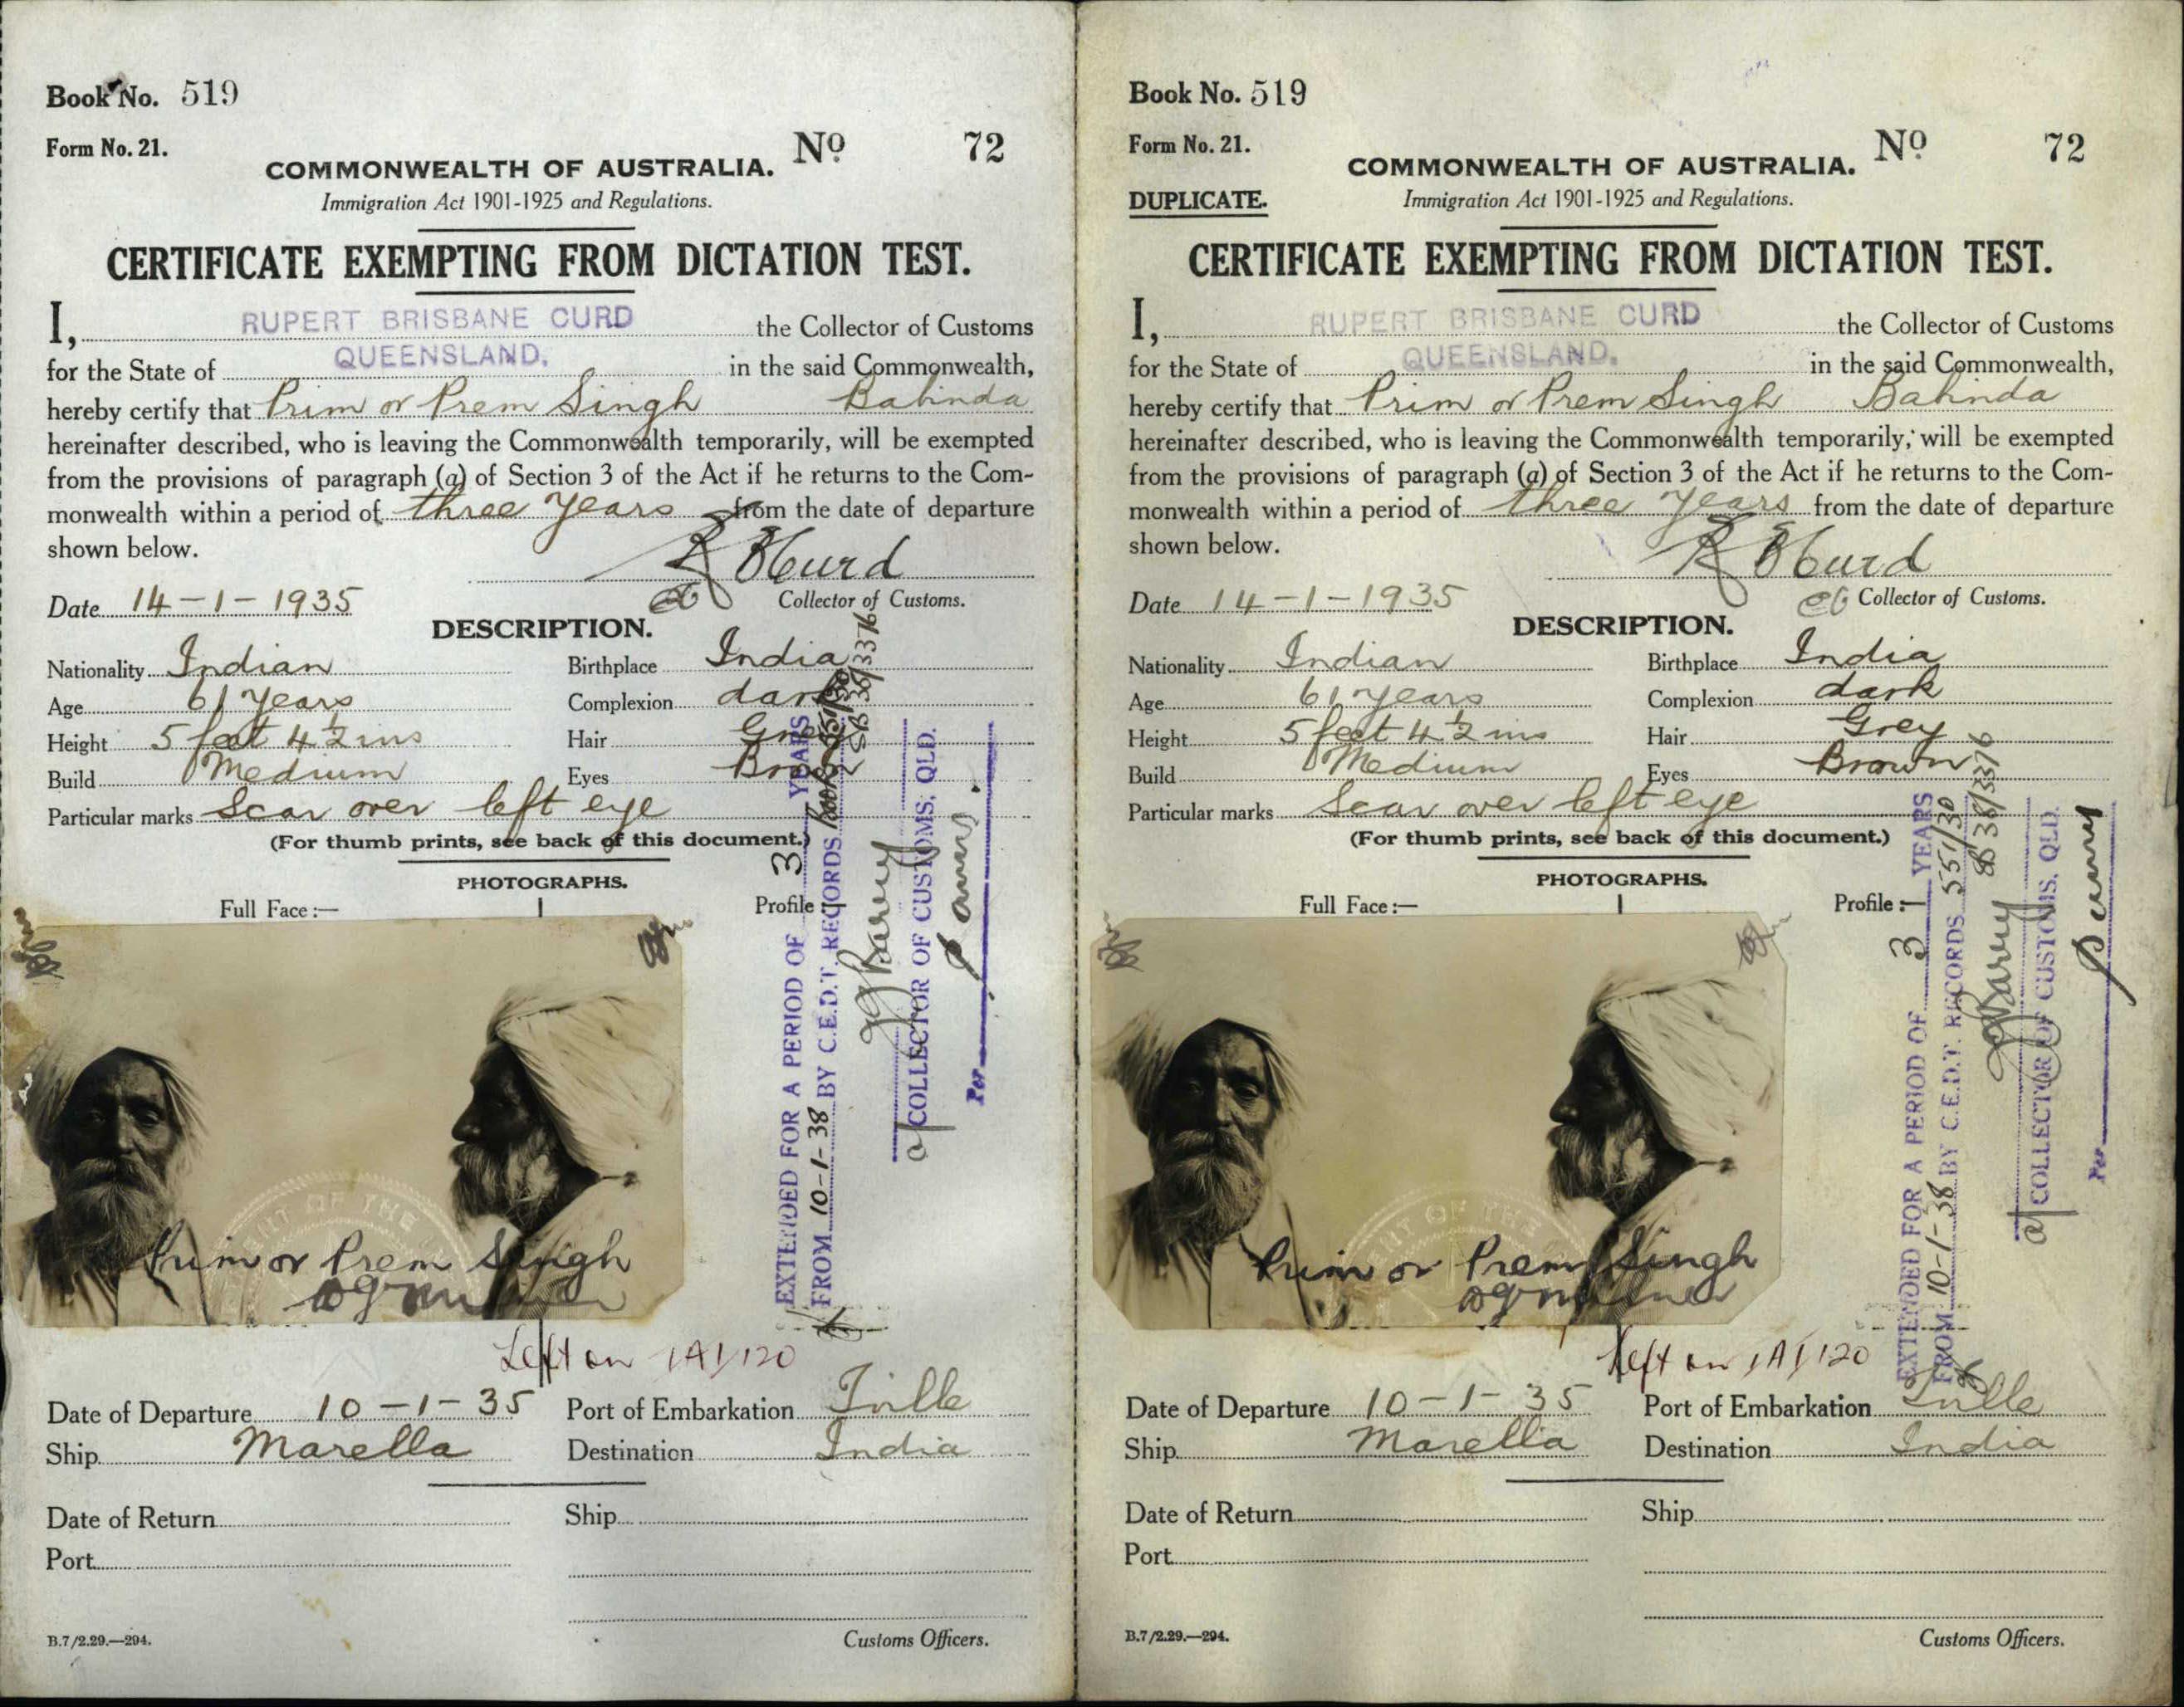 Book No. 519
Form No. 21.
COMMONWEALTH OF AUSTRALIA. No 72
Immigration Act 1901-1925 and Regulations.
CERTIFICATE EXEMPTING FROM DICTATION TEST.
I, RUPERT BRISBANE CURD the Collector of Customs
for the State of QUEENSLAND. in the said Commonwealth,
hereby certify that Prim or Prem Singh Bahinda
hereinafter described, who is leaving the Commonwealth temporarily, will be exempted
from the provisions of paragraph (a) of Section 3 of the Act if he returns to the Com-
monwealth within a period of three years from the date of departure
shown below.
R B Curd
Date 14-1-1935 Collector of Customs.
DESCRIPTION.
Nationality Indian Birthplace India
Age 61 years Complexion dark
Height 5 feet 4½ ins Hair Grey
Build Medium Eyes Brown
Particular marks Scar over left eye
(For thumb prints, see back of this document.)
PHOTOGRAPHS.
Full Face:— Profile:—
ENT OF THE
Prim or Prem Singh
EXTENDED FOR A PERIOD OF 3 YEARS
FROM 10-1-38 BY C.E.D.T. RECORDS
COLLECTOR OF CUSTOMS, QLD.
Per
Left on 1A1/120
Date of Departure 10-1-35 Port of Embarkation Tville
Ship Marella Destination India
Date of Return Ship
Port
B.7/2.29.—294. Customs Officers.
Book No. 519
Form No. 21.
DUPLICATE.
COMMONWEALTH OF AUSTRALIA. No 72
Immigration Act 1901-1925 and Regulations.
CERTIFICATE EXEMPTING FROM DICTATION TEST.
I, RUPERT BRISBANE CURD the Collector of Customs
for the State of QUEENSLAND. in the said Commonwealth,
hereby certify that Prim or Prem Singh Bahinda
hereinafter described, who is leaving the Commonwealth temporarily, will be exempted
from the provisions of paragraph (a) of Section 3 of the Act if he returns to the Com-
monwealth within a period of three years from the date of departure
shown below.
R B Curd
Date 14-1-1935 Collector of Customs.
DESCRIPTION.
Nationality Indian Birthplace India
Age 61 years Complexion dark
Height 5 feet 4½ ins Hair Grey
Build Medium Eyes Brown
Particular marks Scar over left eye
(For thumb prints, see back of this document.)
PHOTOGRAPHS.
Full Face:— Profile:—
ENT OF THE
Prim or Prem Singh
EXTENDED FOR A PERIOD OF 3 YEARS
FROM 10-1-38 BY C.E.D.T. RECORDS 551/30
38/3376
COLLECTOR OF CUSTOMS, QLD.
Per
Left on 1A1/120
Date of Departure 10-1-35 Port of Embarkation Tville
Ship Marella Destination India
Date of Return Ship
Port
B.7/2.29.—294. Customs Officers.